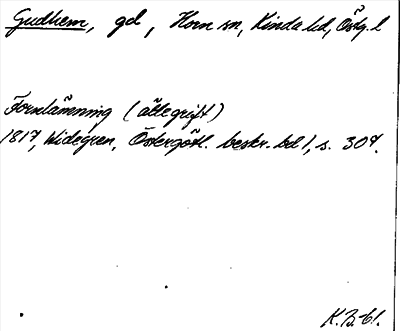 Gudhem, gd, Horn sn, Kinda hd, Östg. l
Fornlämning (ättegrift)
1817, Widegren, Östergötl. beskr. bd 1, s. 307.
K.B-61.